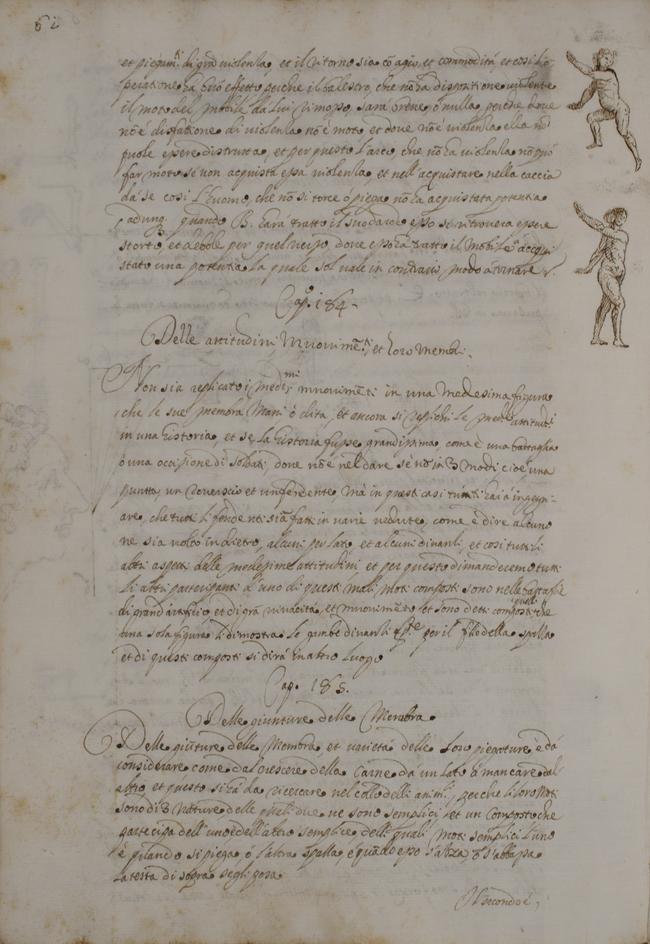 62
et piegam.ti di gra violenza, et il ritorno sia co agio, et commodità et così l'o
peratione ha buo effetto perche il balestro, che nō ha dispositione violente
il moto del mobile da lui rimosso, sara breve ò nulla, perche dove
nō è disfatione di violenza nō è moto, et dove nō è violenza ella nō
puole essere distrutta, et per questo l'arco, che nō ha violenza nō può
far moto se non acquista essa violenza, et nell'acquistare nella caccia
da se cosi l'huomo, che nō si torce ò piega nō ha acquistata potentia
adunq. quando B. harà tratto il suo dardo esso si ritroverà essere
storto, et debole per quel verso, dove esso ha tratto il mobile, et acqui
stato una potentia la quale sol vale in contrario modo
Cap.o 184.
Delle attitudini Muovimē.ti et loro membri.
Non sia replicato i med.mi muovimēti in una medesima figura
che le sue membra Mani ò dita, et ancora si replichi le med.e attitudi
in una historia, et se la historia fusse grandissima, come è una battaglia
ò una occisione di soldati dove nō è nel dare se nō in 3 modi cioè una
punta, un roverscio et un fendente, ma in questi casi tu ti hai à ingegn-
are, che tutti li fendenti sia fatti in varie vedute, come è dire alcuno
ne sia volto indietro, alcuni per lato et alcuni dinanzi, et così tutti li
altri aspetti delle medesime attitudini et per questo dimanderemo tutti
li altri participanti d'uno di questi moti, Moti composti sono nelle battaglie
di grand'artificio et di gra vivacità, et muovimēto et sono detti composti quelli che
una sola figura ti dimostra le gambe dinanzi et p.te per il profilo della spalla
et di questi composti si dirà in altro luogo
Cap. 185.
Delle giunture delle Membra
Delle giūture delle Membra et varietà delle loro piegature è da
considerare come dal crescere della Carne da un lato è mancare dal
altro et questo si ha da ricercare nel collo delli animi, perche li loro moti
sono di 3 nature delle quali due ne sono semplici et un composto che
partecipa dell'uno è dell'altro semplice delli quali moti semplici l'uno
è quando si piega a l'altra spalla, ò quādo esso s'alza ò s'abbassa
la testa di sopra se gli posa
Il secondo è,